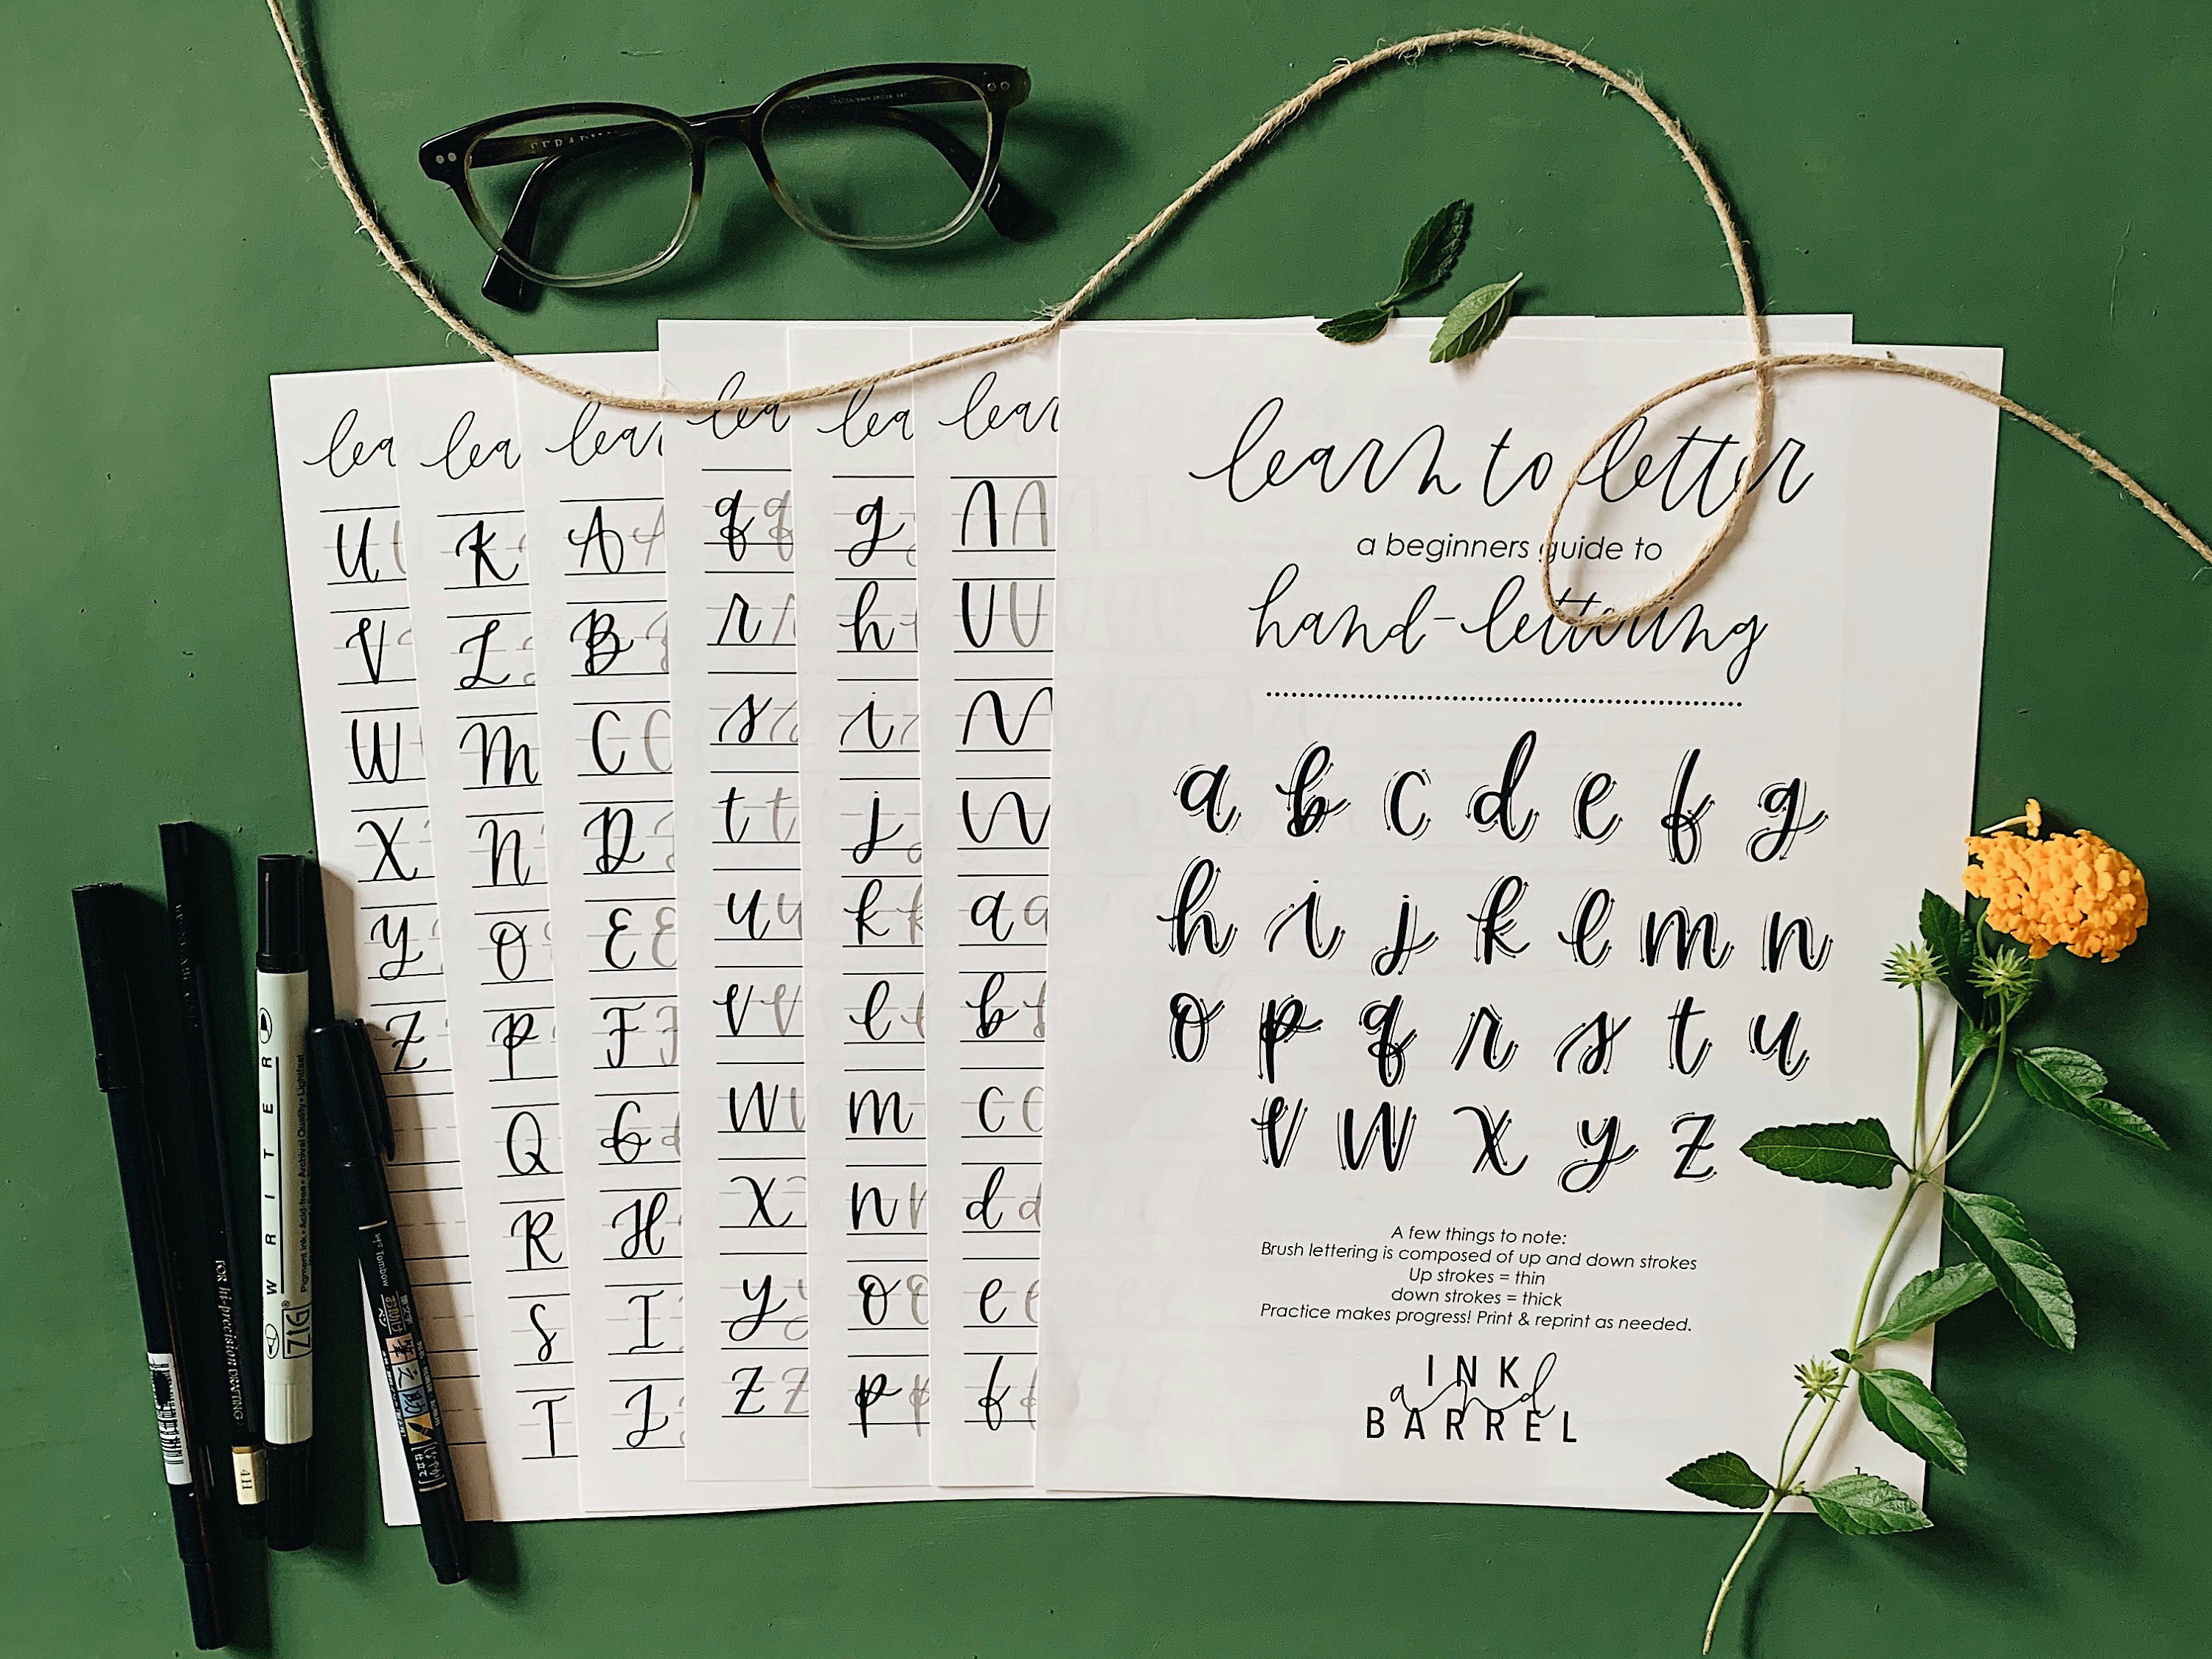 learn to letter
a beginners guide to
hand-lettering
a b c d e f g
h i j k l m n
o p q r s t u
v w x y z
A few things to note:
Brush lettering is composed of up and down strokes
Up strokes = thin
down strokes = thick
Practice makes progress! Print & reprint as needed.
INK
and
BARREL
1
lea
U
V
W
X
Y
Z
lea
K
L
M
N
O
P
Q
R
S
T
lear
A A
B
C C
D
E E
F F
G
H
I
J
lea
q q
r r
s s
t t
u u
v v
w
x
y y
z z
lea
g
h
i
j
k k
l
m
n n
o o
p p
lear
a a
b b
c c
d d
e e
f
FOR hi-precision DRAFTING
4H
WRITER
ZIG
Pigment ink • Acid-free • Archival Quality • Lightfast
Tombow